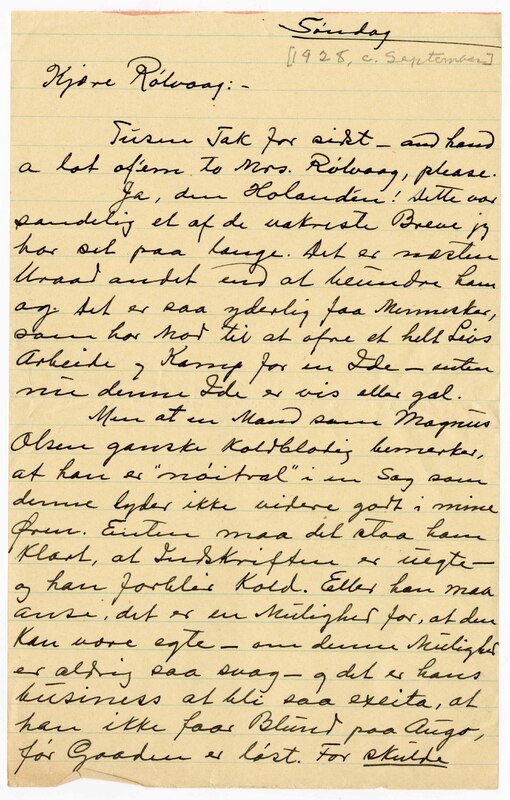 Søndag
[1928, c. September]
Kjære Rølvaag:-
Tusen Tak for sidst - and hand
a lot of'em to Mrs. Rølvaag, please.
Ja, den Holanden! Dette var
sandelig et af de vakreste Breve jeg
har set paa lange. Det er næsten
Uraad andet end at beundre ham
og det er saa yderlig faa Mennesker,
som har Mod til at ofre et helt Livs
Arbeide og Kamp for en Ide - enten
nu denne Ide er vis eller gal.
Men at en Mand som Magnus
Olsen ganske koldblodig bemerker,
at han er "nøitral" i en Sag som
denne lyder ikke videre godt i mine
Øren. Enten maa det staa ham
klart, at Indskriften er uegte -
og han forblir Kold. Eller han maa
anse, det er en Mulighed for, at den
kan være egte - om denne Mulighed
er aldrig saa svag - og det er hans
business at bli saa exeita, at
han ikke faar Blund paa Auga,
før Gaaden er løst. For skulde